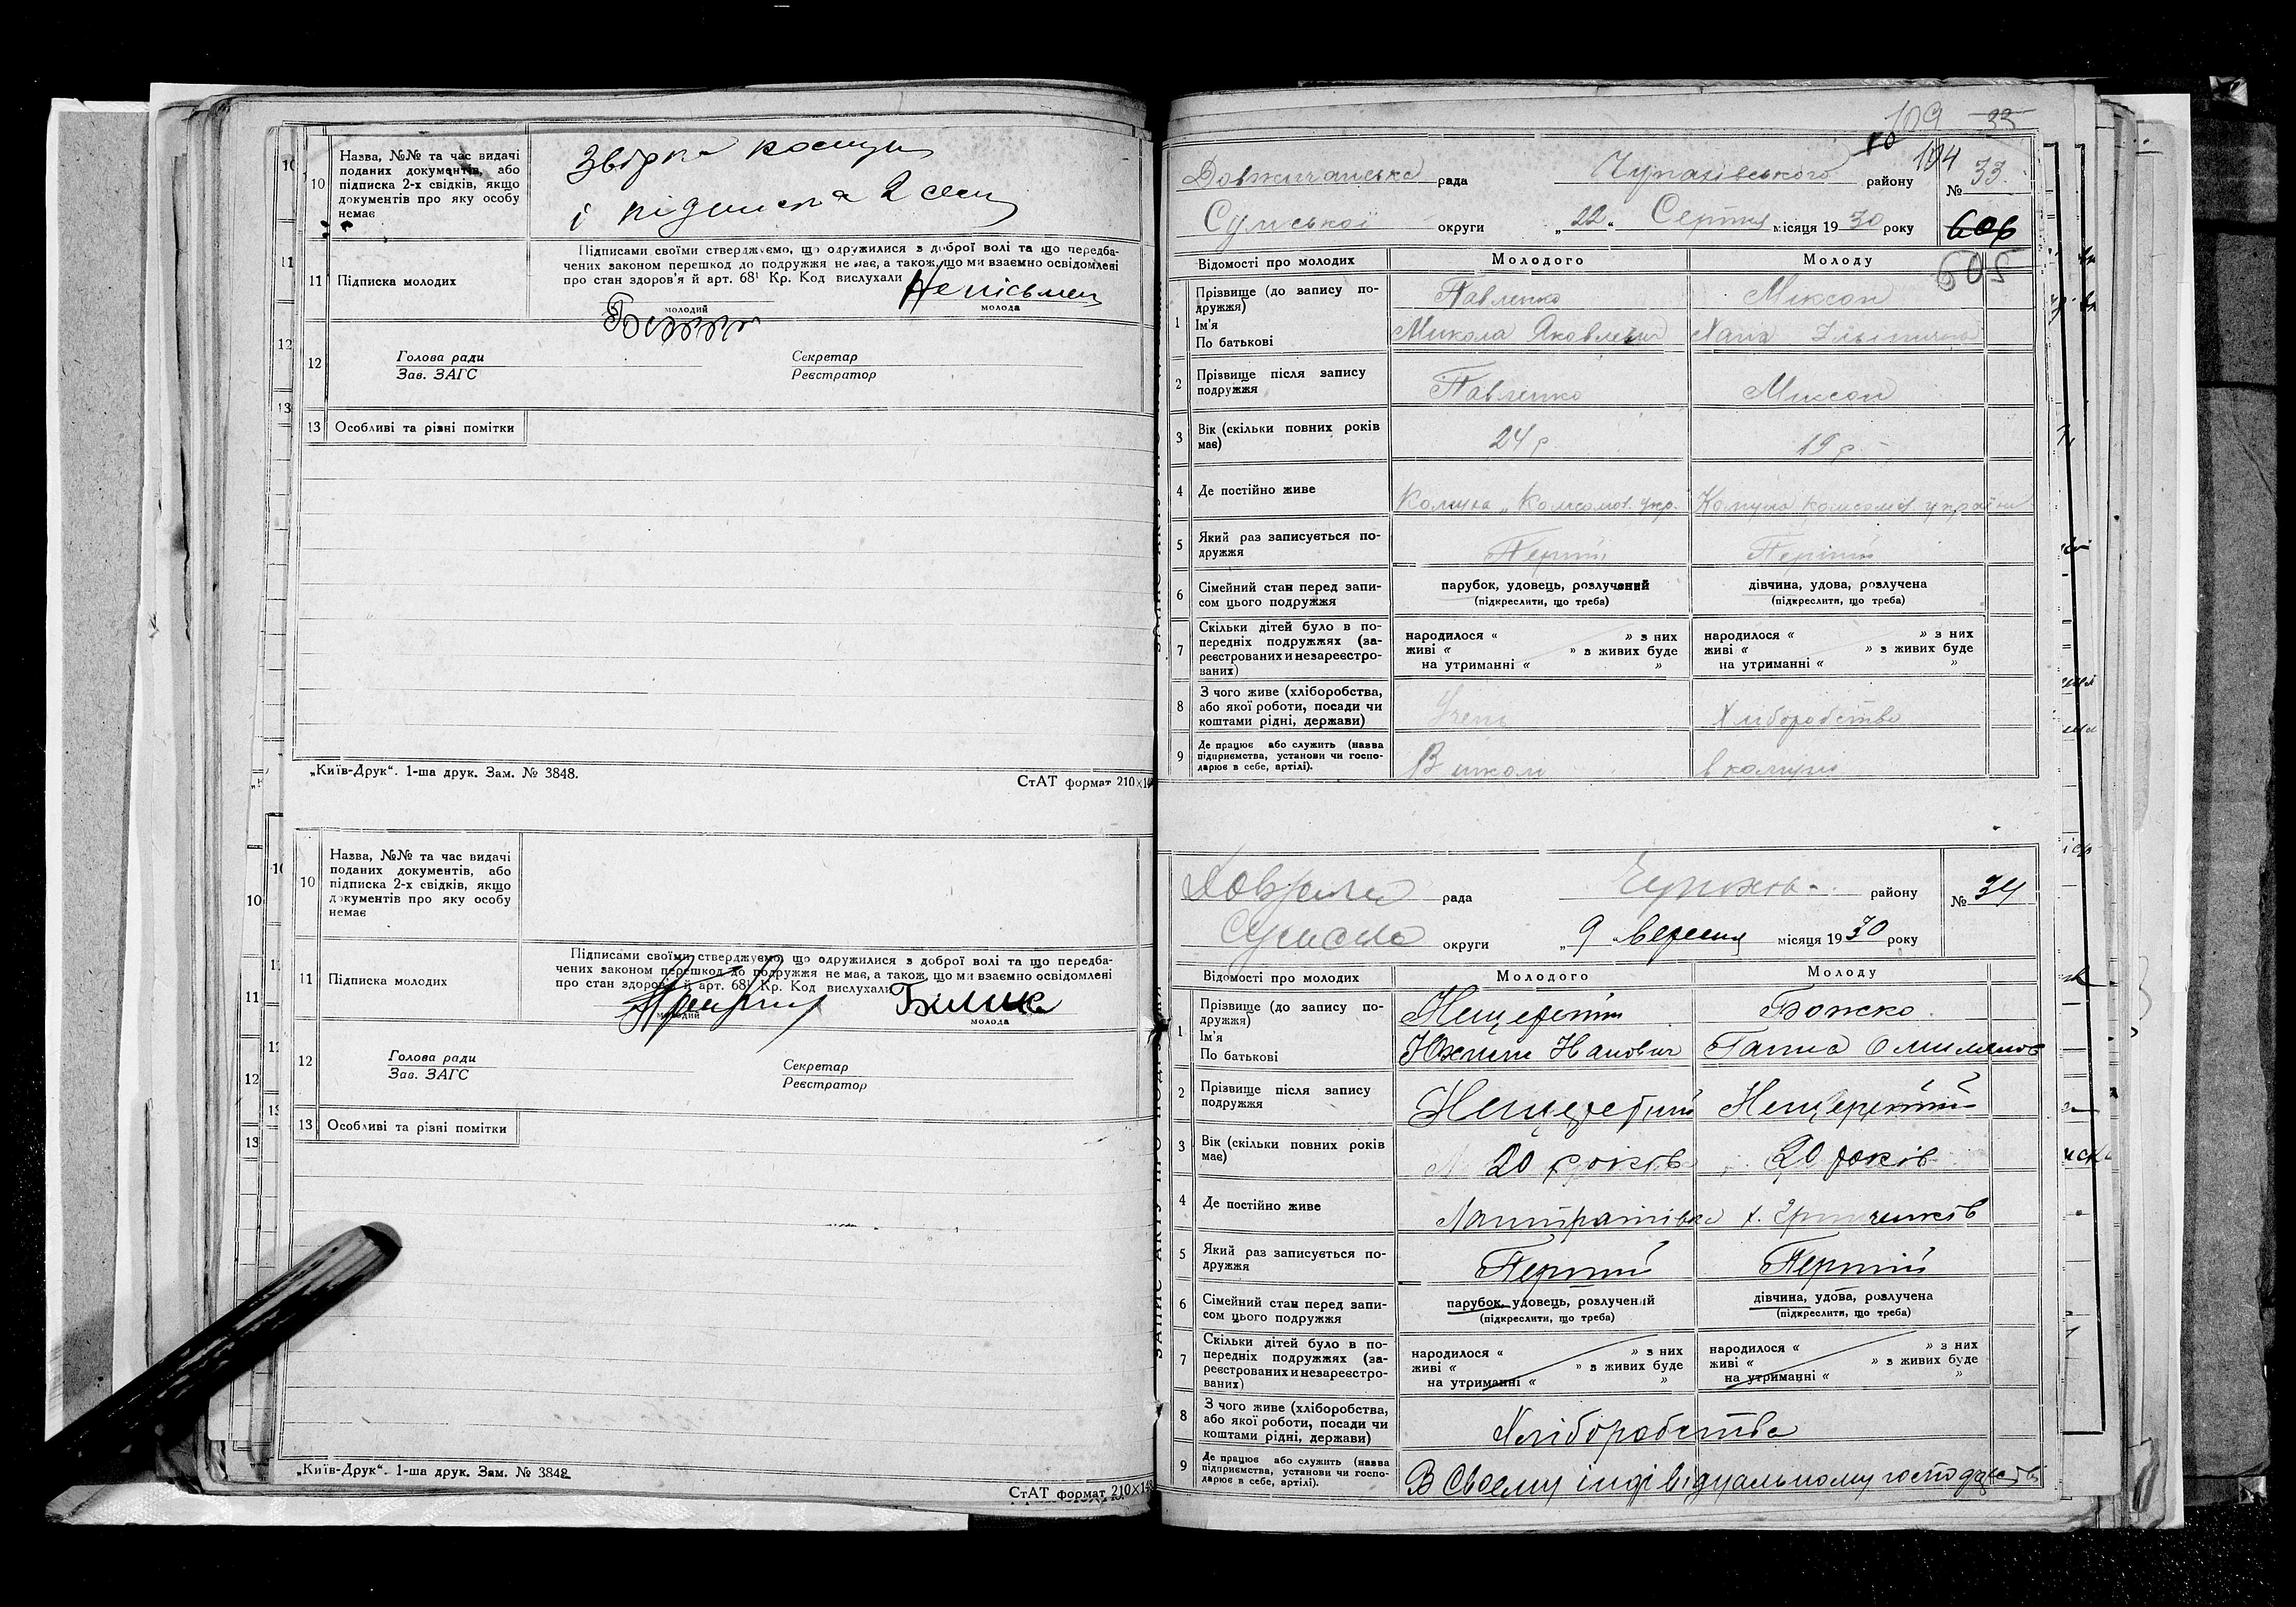 10 Назва, №№ та час видачі
поданих документів, або
підписка 2-х свідків, якщо
документів про яку особу
немає
і підписка 2
11 Підписка молодих
Підписами своїми стверджуємо, що одружилися з доброї волі та що передба-
чених законом перешкод до подружжя не має, а також, що ми взаємно освідомлені
про стан здоров'я й арт. 68¹ Кр. Код вислухали
молодий
молода
12 Голова ради
Зав. ЗАГС
Секретар
Реєстратор
13 Особливі та різні помітки
„Київ-Друк“. 1-ша друк. Зам. № 3848.
СтАТ формат 210×14
10 Назва, №№ та час видачі
поданих документів, або
підписка 2-х свідків, якщо
документів про яку особу
немає
11 Підписка молодих
Підписами своїми стверджуємо, що одружилися з доброї волі та що передба-
чених законом перешкод до подружжя не має, а також, що ми взаємно освідомлені
про стан здоров'я й арт. 68¹ Кр. Код вислухали
Білик
молодий
молода
12 Голова ради
Зав. ЗАГС
Секретар
Реєстратор
13 Особливі та різні помітки
„Київ-Друк“. 1-ша друк. Зам. № 3848
СтАТ формат 210×148
109 33
104
рада району № 33
Сумської округи „22“ Серпня місяця 1930 року
606
605
Відомості про молодих Молодого Молоду
1 Прізвище (до запису по-
дружжя)
Ім'я
По батькові
Павленко Міксон
Микола Яковлевич
2 Прізвище після запису
подружжя
Павленко Миксон
3 Вік (скільки повних років
має)
24 р 19 р
4 Де постійно живе
Комуна „Комсомол. Укр. Комуна комсомол україни
5 Який раз записується по-
дружжя
Перший Перший
6 Сімейний стан перед запи-
сом цього подружжя
парубок, удовець, розлучений
(підкреслити, що треба)
дівчина, удова, розлучена
(підкреслити, що треба)
7 Скільки дітей було в по-
передніх подружжях (за-
реєстрованих и незареєстро-
ваних)
народилося « » з них
живі « » в живих буде
на утриманні « »
народилося « » з них
живі « » в живих буде
на утриманні « »
8 З чого живе (хліборобства,
або якої роботи, посади чи
коштами рідні, держави)
Хліборобство
9 Де працює або служить (назва
підприємства, установи чи госпо-
дарює в себе, артілі).
В школі в комуні
рада району № 34
округи „9“ вересня місяця 1930 року
Відомості про молодих Молодого Молоду
1 Прізвище (до запису по-
дружжя)
Ім'я
По батькові
Нещеретний Божко
Ганна
2 Прізвище після запису
подружжя
Нещеретний Нещеретній
3 Вік (скільки повних років
має)
20 років 20 років
4 Де постійно живе
5 Який раз записується по-
дружжя
Перший Перший
6 Сімейний стан перед запи-
сом цього подружжя
парубок, удовець, розлучений
(підкреслити, що треба)
дівчина, удова, розлучена
(підкреслити, що треба)
7 Скільки дітей було в по-
передніх подружжях (за-
реєстрованих и незареєстро-
ваних)
народилося « » з них
живі « » в живих буде
на утриманні « »
народилося « » з них
живі « » в живих буде
на утриманні « »
8 З чого живе (хліборобства,
або якої роботи, посади чи
коштами рідні, держави)
Хліборобство
9 Де працює або служить (назва
підприємства, установи чи госпо-
дарює в себе, артілі).
В своєму індівідуальному господарстві